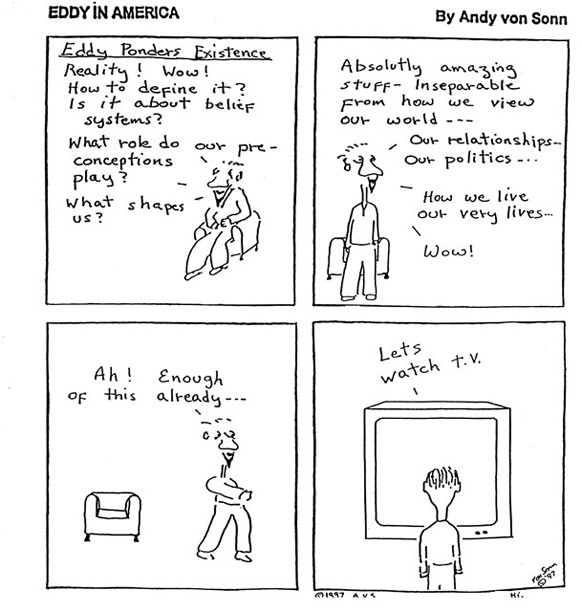 EDDY IN AMERICA
By Andy von Sonn
Eddy Ponders Existence
Reality! Wow!
How to define it?
Is it about belief
systems?
What role do our pre-
conceptions
play?
What shapes
us?
Absolutly amazing
stuff- Inseparable
from how we view
our world ---
Our relationships...
Our politics -...
How we live
our very lives...
Wow!
Ah! Enough
of this already---
Lets
watch t.v.
von Sonn
© '97
©1997 A V S
Hi.